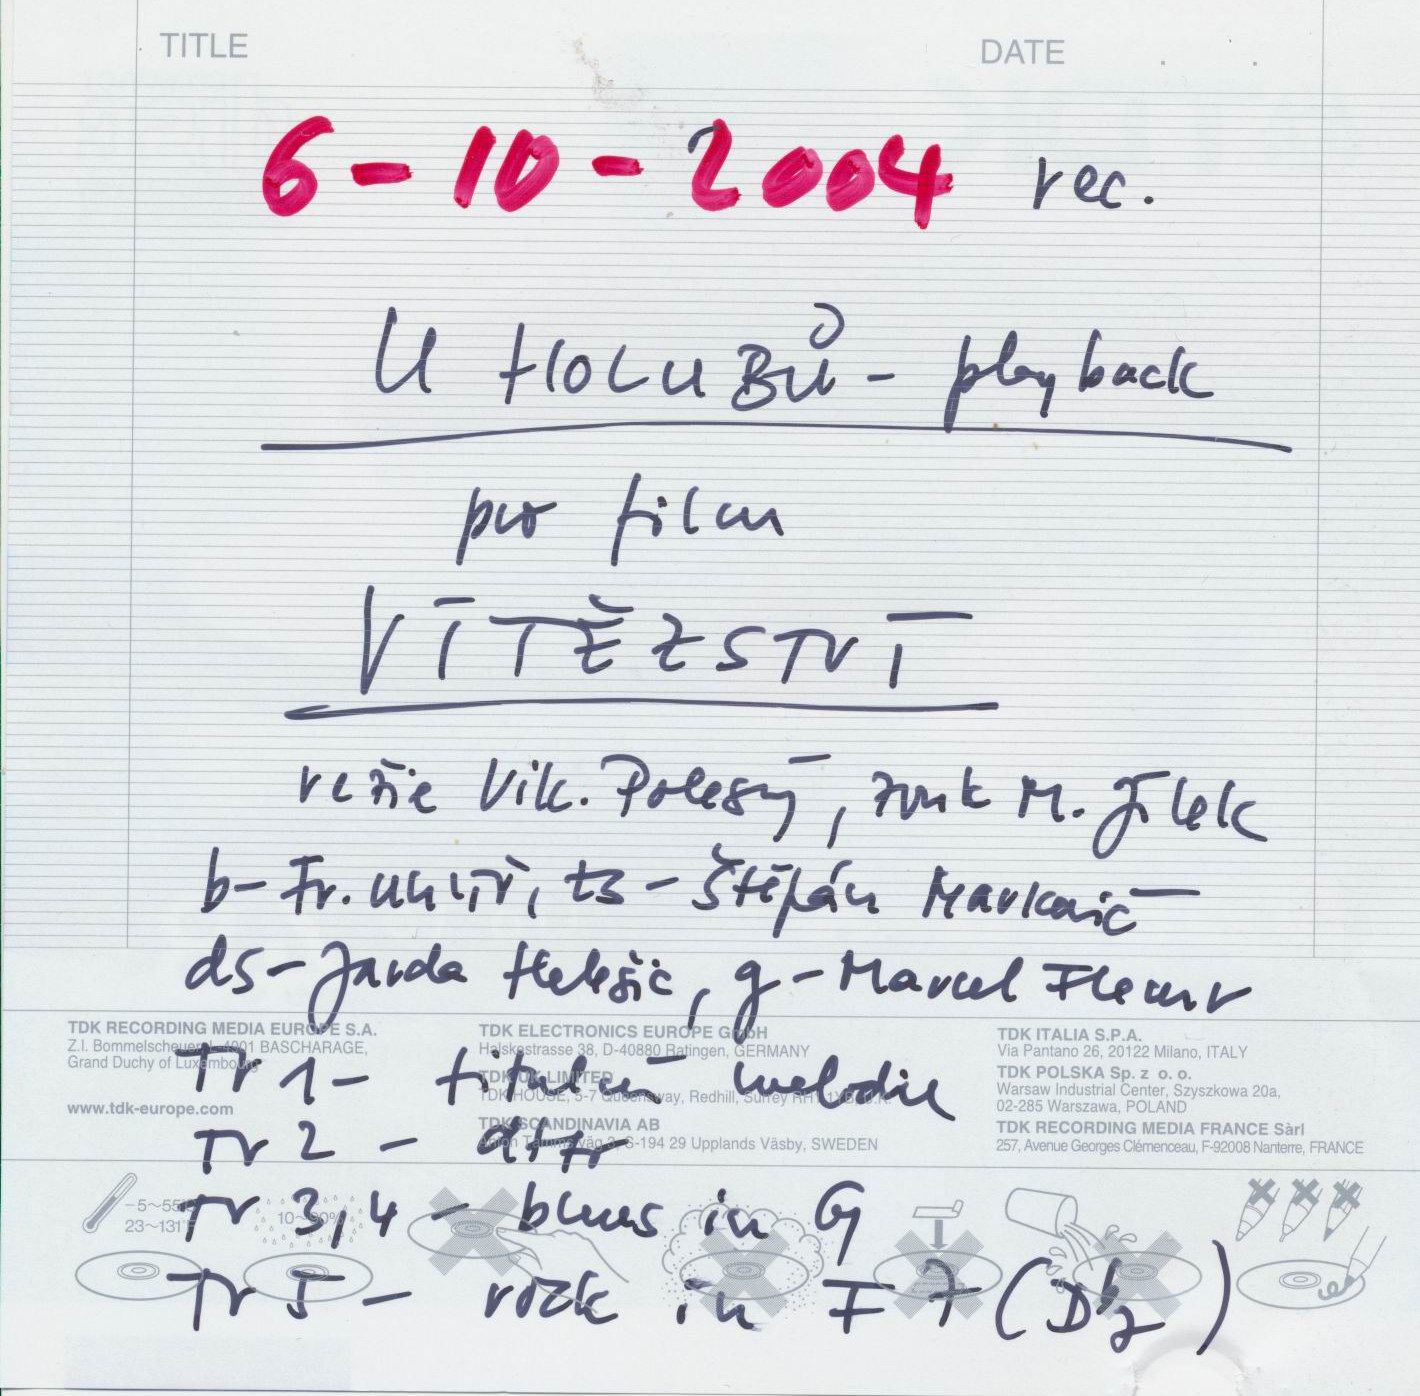 TITLE DATE . .
6-10-2004 rec.
U HOLUBŮ - playback
pro film
VÍTĚZSTVÍ
režie Vik. Polesný, zvuk M. Jílek
b- Fr. Uhlíř, ts - Štěpán Markovič
ds - Jarda Helešic, g - Marcel Flemr
TDK RECORDING MEDIA EUROPE S.A.
Z.I. Bommelscheuer, L-4901 BASCHARAGE,
Grand Duchy of Luxembourg
www.tdk-europe.com
TDK ELECTRONICS EUROPE GmbH
Halskestrasse 38, D-40880 Ratingen, GERMANY
TDK UK LIMITED
TDK HOUSE, 5-7 Queensway, Redhill, Surrey RH1 1YB, U.K.
TDK SCANDINAVIA AB
Anton Tamms väg 3, S-194 29 Upplands Väsby, SWEDEN
TDK ITALIA S.P.A.
Via Pantano 26, 20122 Milano, ITALY
TDK POLSKA Sp. z o. o.
Warsaw Industrial Center, Szyszkowa 20a,
02-285 Warszawa, POLAND
TDK RECORDING MEDIA FRANCE Sàrl
257, Avenue Georges Clémenceau, F-92008 Nanterre, FRANCE
Tr 1- titulní melodie
Tr 2 - dtto
Tr 3,4 - blues in G
Tr 5 - rock in F 7 (Db7)
-5~55°C
23~131°F
10~90%